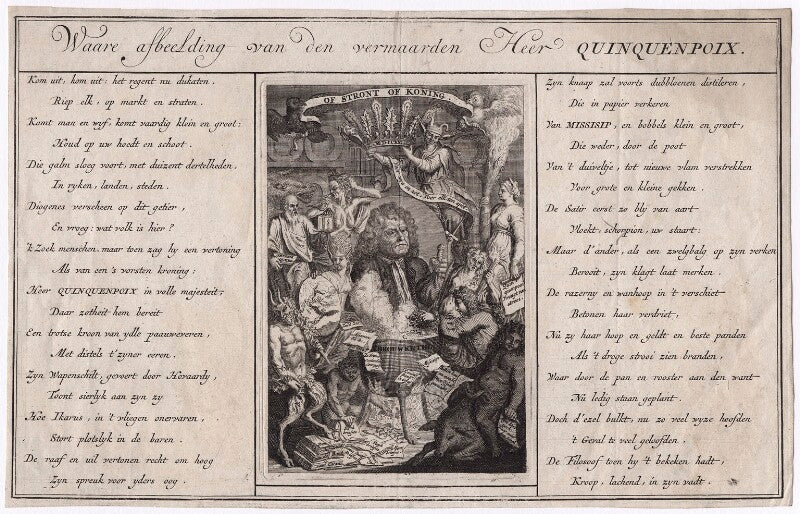 Waare afbeelding van den vermaarden Heer QUINQUENPOIX.
Kom uit, kom uit: het regent nu dukaten,
Riep elk, op markt en straten.
Komt man en wyf, komt vaardig klein en groot:
Houd op uw hoedt en schoot.
Die galm sloeg voort, met duizent dertelheden,
In ryken, landen, steden.
Diogenes verscheen op dit getier,
En vroeg: wat volk is hier?
'k Zoek menschen, maar toen zag hy een vertoning
Als van een's vorsten kroning:
Heer QUINQUENPOIX in volle majesteit;
Daar zotheit hem bereit
Een trotse kroon van ydle paauweveren,
Met distels t'zyner eeren.
Zyn Wapenschilt, gevoert door Hovaardy,
Toont sierlyk aan zyn zy
Hoe Ikarus, in 't vliegen onervaren,
Stort plotslyk in de baren.
De raaf en uil vertonen recht om hoog
Zyn spreuk voor yders oog.
OF STRONT OF KONING.
Zyn knaap zal voorts dubbloenen distileren,
Die in papier verkeren
Van MISSISIP, en bobbels klein en groot,
Die weder, door de poot
Van 't duiveltje, tot nieuwe vlam verstrekken
Voor grote en kleine gekken.
De Satir eerst zo bly van aart
Vloekt, schorpion, uw staart:
Maar d'ander, als een zwelgbalg op zyn verken
Beroit, zyn klagt laat merken.
De razerny en wanhoop in 't verschiet
Betonen haar verdriet,
Nu zy haar hoop en geldt en beste panden
Als 't droge strooi zien branden,
Waar door de pan en rooster aan den want
Nu ledig staan geplant.
Doch d'ezel bulkt, nu zo veel wyze hoofden
't Geval te veel geloofden,
De Filosoof toen hy 't bekeken hadt,
Kroop, lachend, in zyn vadt.